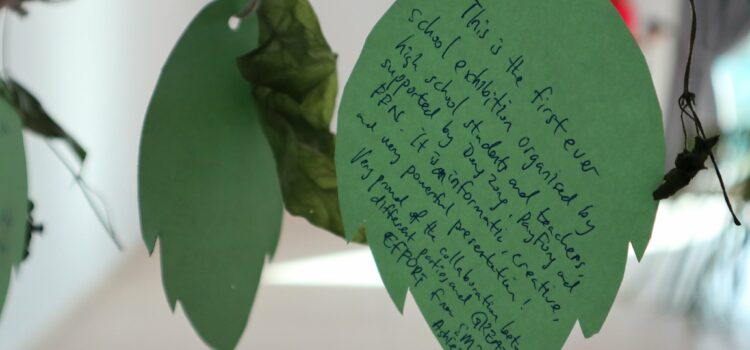 This is the first ever
school exhibition organised by
high school students and teachers,
supported by Deny Zong, PayFong and
PFN. It is informatic creative,
and very powerful presentation!
Very proud of the collaboration
different parties and
EFFORT from